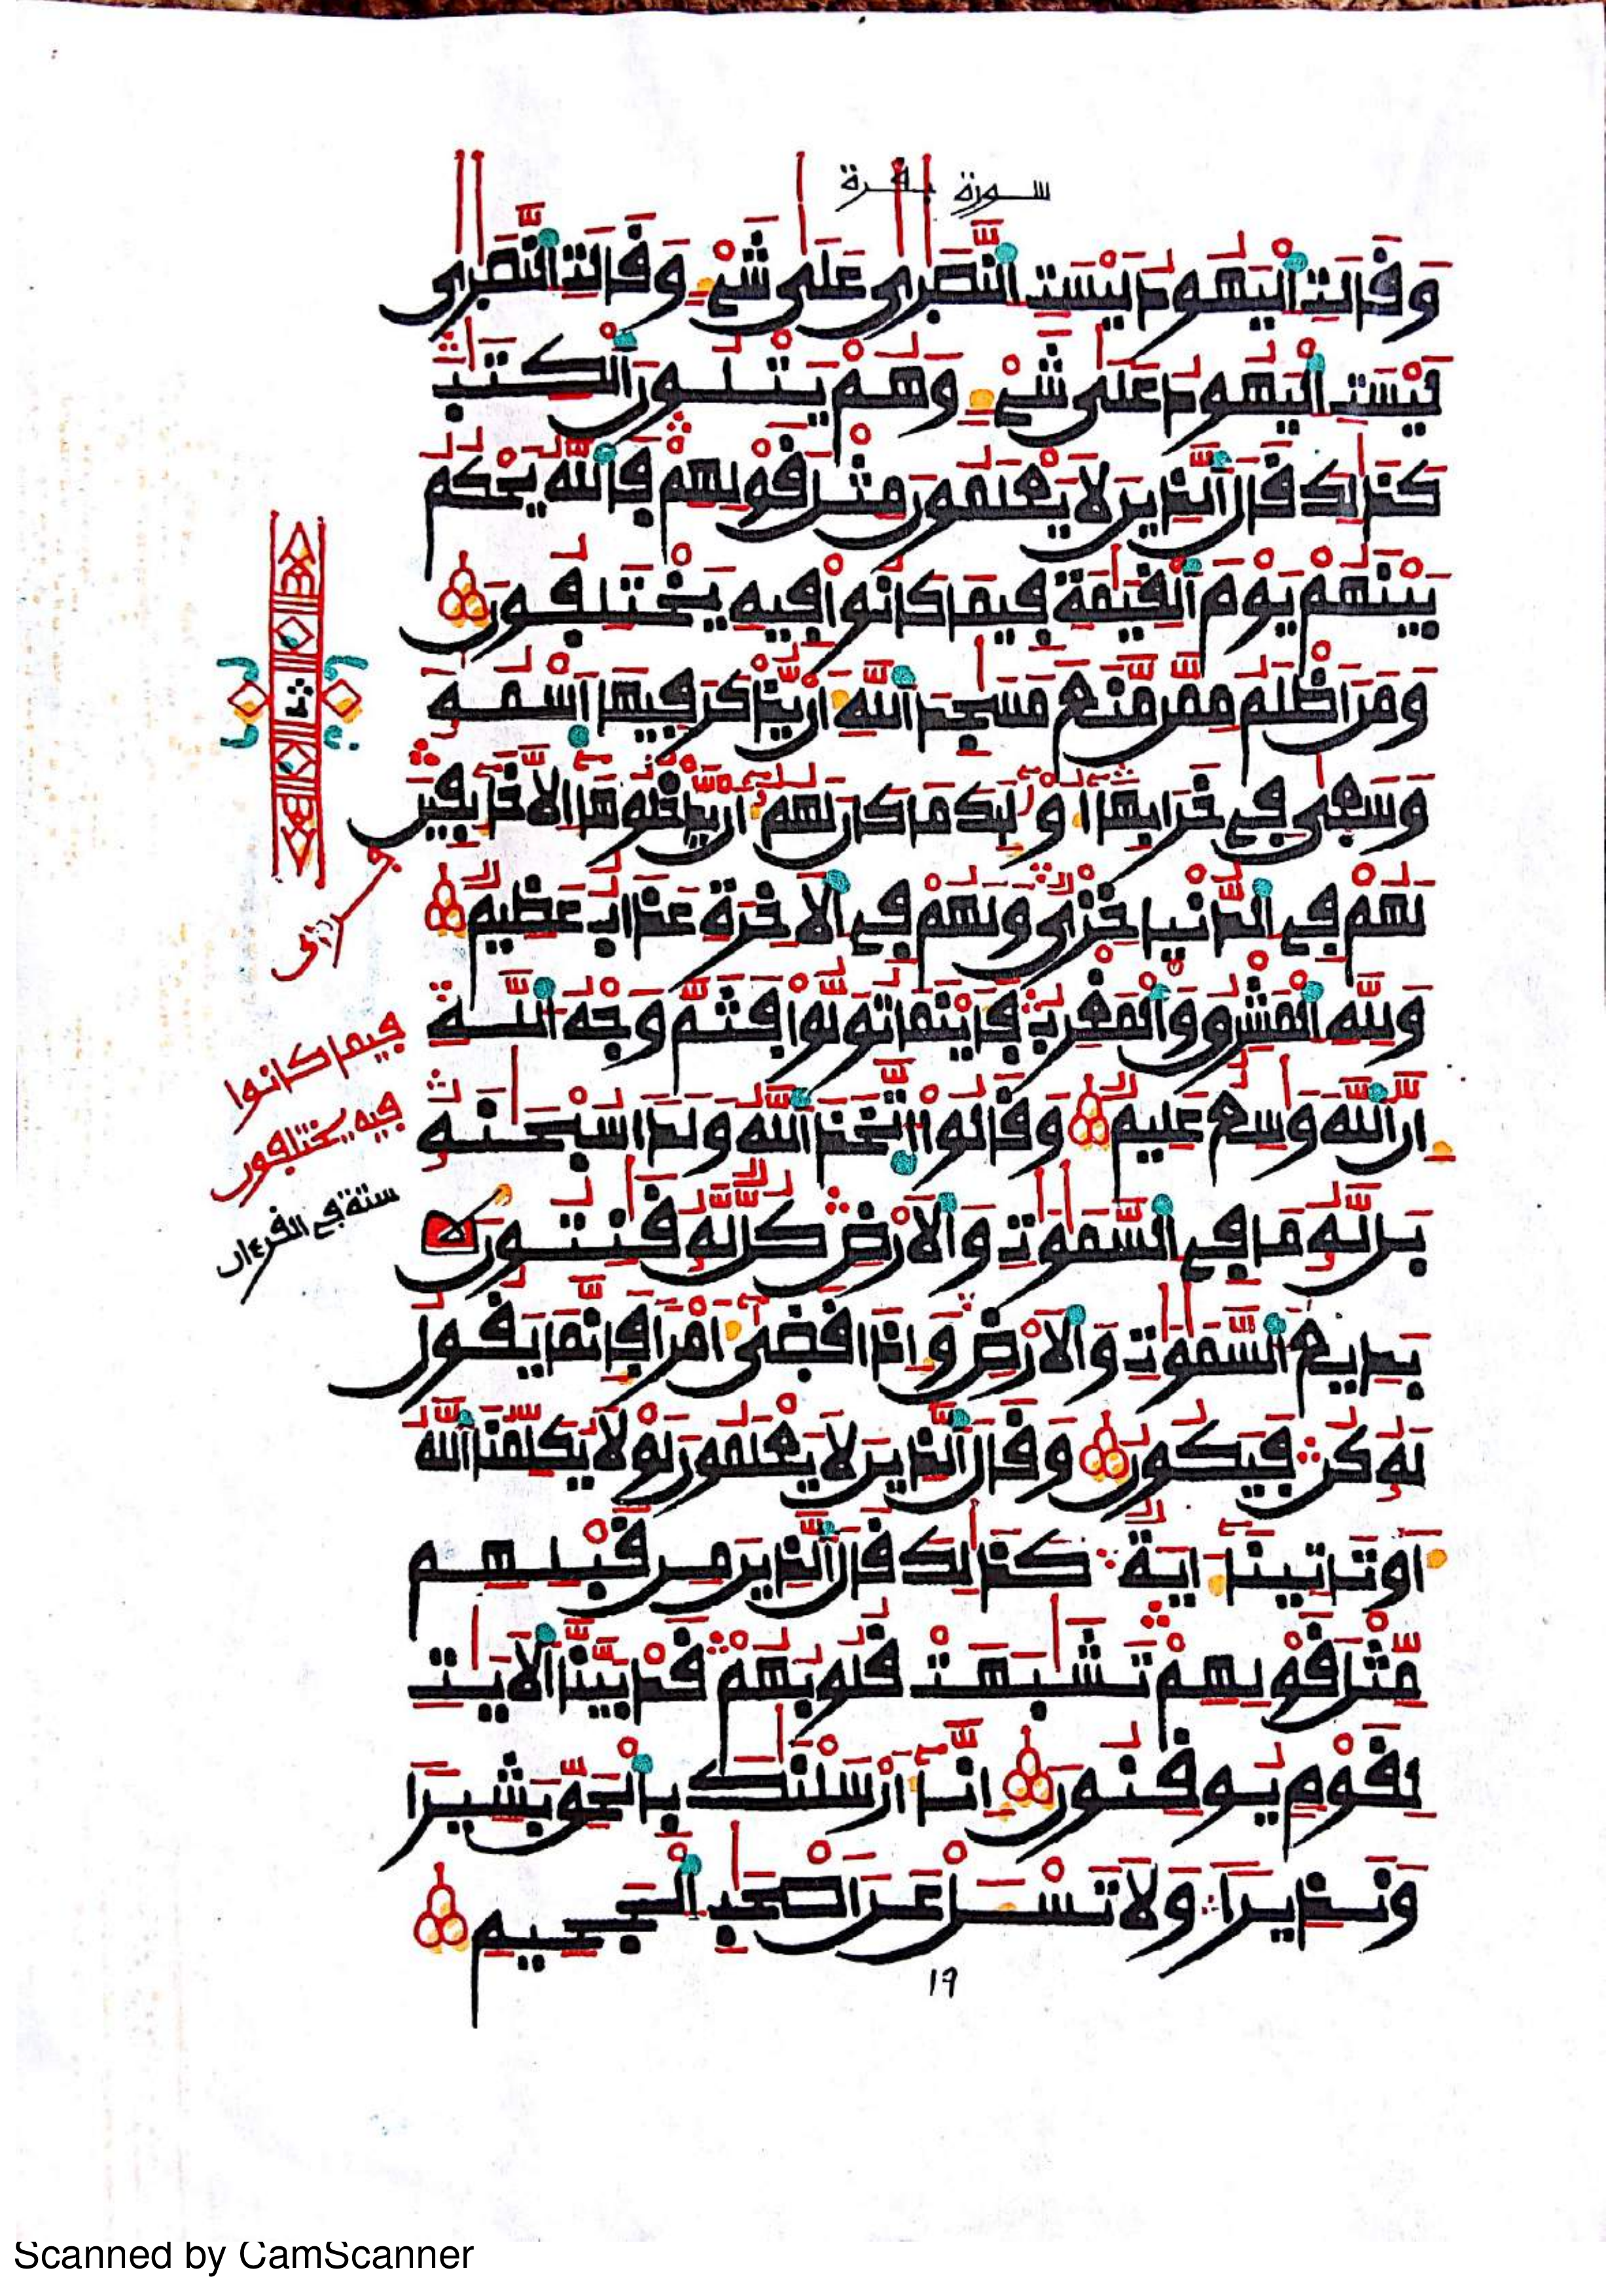 سورة بقرة
وَقَالَتِ الْيَهُودُ لَيْسَتِ النَّصَٰرَىٰ عَلَىٰ شَيْءٍ وَقَالَتِ النَّصَٰرَىٰ
لَيْسَتِ الْيَهُودُ عَلَىٰ شَيْءٍ وَهُمْ يَتْلُونَ الْكِتَٰبَ
كَذَٰلِكَ قَالَ الَّذِينَ لَا يَعْلَمُونَ مِثْلَ قَوْلِهِمْ فَاللَّهُ يَحْكُمُ
بَيْنَهُمْ يَوْمَ الْقِيَٰمَةِ فِيمَا كَانُوا فِيهِ يَخْتَلِفُونَ
وَمَنْ أَظْلَمُ مِمَّن مَّنَعَ مَسَٰجِدَ اللَّهِ أَنْ يُّذْكَرَ فِيهَا اسْمُهُ
وَسَعَىٰ فِي خَرَابِهَا أُوْلَٰئِكَ مَا كَانَ لَهُمْ أَنْ يَّدْخُلُوهَا إِلَّا خَائِفِينَ
لَهُمْ فِي الدُّنْيَا خِزْيٌ وَلَهُمْ فِي الْأَخِرَةِ عَذَابٌ عَظِيمٌ
وَلِلَّهِ الْمَشْرِقُ وَالْمَغْرِبُ فَأَيْنَمَا تُوَلُّوا فَثَمَّ وَجْهُ اللَّهِ
إِنَّ اللَّهَ وَٰسِعٌ عَلِيمٌ وَقَالُوا اتَّخَذَ اللَّهُ وَلَدًا سُبْحَٰنَهُ
بَل لَّهُ مَا فِي السَّمَٰوَٰتِ وَالْأَرْضِ كُلٌّ لَّهُ قَٰنِتُونَ
بَدِيعُ السَّمَٰوَٰتِ وَالْأَرْضِ وَإِذَا قَضَىٰ أَمْرًا فَإِنَّمَا يَقُولُ
لَهُ كُنْ فَيَكُونُ وَقَالَ الَّذِينَ لَا يَعْلَمُونَ لَوْلَا يُكَلِّمُنَا اللَّهُ
أَوْ تَأْتِينَا ءَايَةٌ كَذَٰلِكَ قَالَ الَّذِينَ مِنْ قَبْلِهِم
مِّثْلَ قَوْلِهِمْ تَشَٰبَهَتْ قُلُوبُهُمْ قَدْ بَيَّنَّا الْأَيَٰتِ
لِقَوْمٍ يُوقِنُونَ إِنَّا أَرْسَلْنَٰكَ بِالْحَقِّ بَشِيرًا
وَنَذِيرًا وَلَا تَسْـَٔلْ عَنْ أَصْحَٰبِ الْجَحِيمِ
فيما كانوا
فيه يختلفون
ستة في القرءان
١٩
Scanned by CamScanner